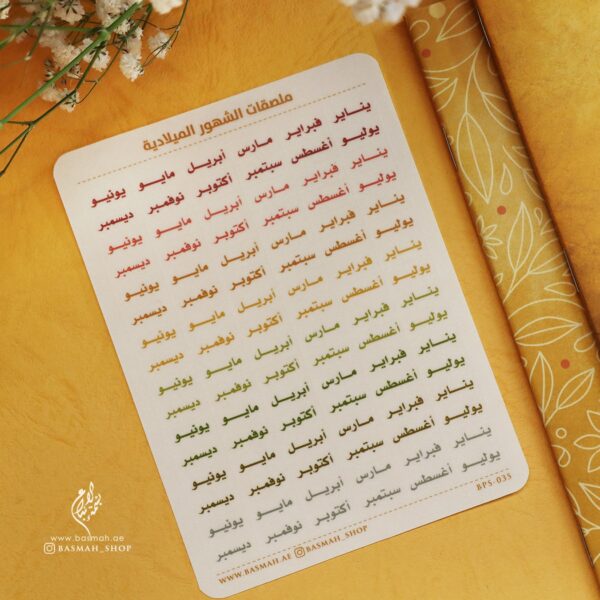 ملصقات الشهور الميلادية
يناير فبراير مارس أبريل مايو يونيو
يوليو أغسطس سبتمبر أكتوبر نوفمبر ديسمبر
يناير فبراير مارس أبريل مايو يونيو
يوليو أغسطس سبتمبر أكتوبر نوفمبر ديسمبر
يناير فبراير مارس أبريل مايو يونيو
يوليو أغسطس سبتمبر أكتوبر نوفمبر ديسمبر
يناير فبراير مارس أبريل مايو يونيو
يوليو أغسطس سبتمبر أكتوبر نوفمبر ديسمبر
يناير فبراير مارس أبريل مايو يونيو
يوليو أغسطس سبتمبر أكتوبر نوفمبر ديسمبر
يناير فبراير مارس أبريل مايو يونيو
يوليو أغسطس سبتمبر أكتوبر نوفمبر ديسمبر
يناير فبراير مارس أبريل مايو يونيو
يوليو أغسطس سبتمبر أكتوبر نوفمبر ديسمبر
يناير فبراير مارس أبريل مايو يونيو
يوليو أغسطس سبتمبر أكتوبر نوفمبر ديسمبر
WWW.BASMAH.AE BASMAH_SHOP BPS-035
www.basmah.ae
BASMAH_SHOP